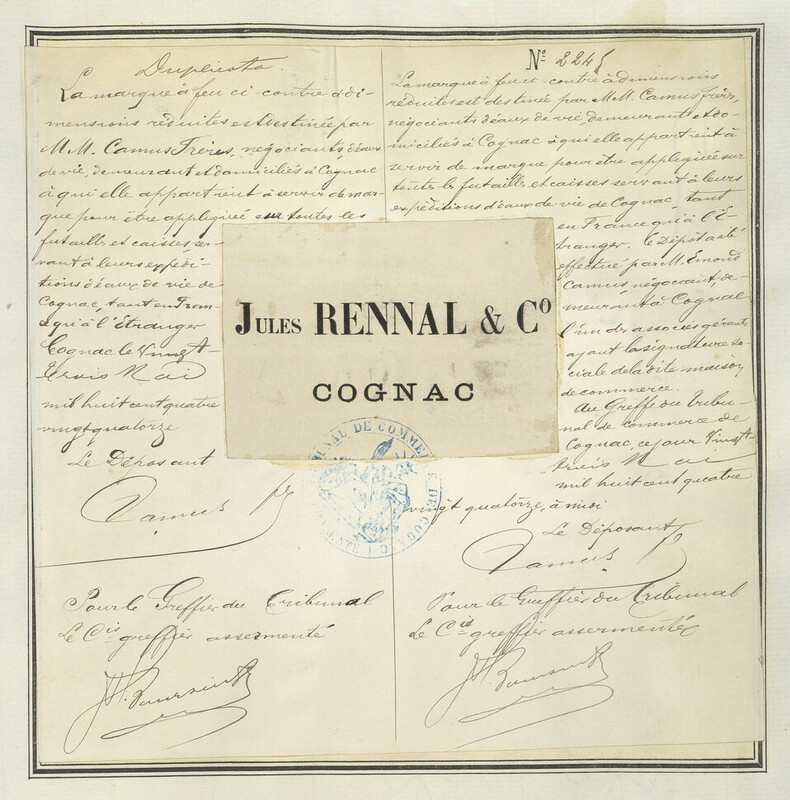 Duplicata.
La marque à feu ci-contre à di-
mensions réduites est destinée par
M.M. Camus Frères, négociants d'eaux
de vie, demeurant et domiciliés à Cognac
à qui elle appartient à servir de mar-
que pour être appliquée sur toutes les
futailles et caisses ser-
vant à leurs expédi-
tions d'eaux de vie de
Cognac, tant en Fran-
ce qu'à l'Etranger
Cognac le Vingt-
trois Mai
mil huit cent quatre
vingt quatorze
Le Déposant
Camus
Pour le Greffier du Tribunal
Le Cis greffier assermenté
No 2245
La marque à feu ci-contre à dimensions
réduites est destinée par M.M. Camus frères,
négociants d'eaux de vie, demeurant et do-
miciliés à Cognac à qui elle appartient à
servir de marque pour être appliquée sur
toutes les futailles et caisses servant à leurs
expéditions d'eaux de vie de Cognac, tant
en France qu'à l'É-
tranger. Le Dépôt a été
effectué par M. Émond
Camus négociant, de-
meurant à Cognac
l'un des associés gérants
ayant la signature so-
ciale de la dite maison
de commerce.
Au Greffe du Tribu-
nal de commerce de
Cognac, ce jour Vingt
trois Mai
mil huit cent quatre
vingt quatorze, à midi
Le Déposant
Camus
Pour le Greffier du Tribunal
Le Cis greffier assermenté
JULES RENNAL & Co
COGNAC
DE COMMERCE DE COGNAC